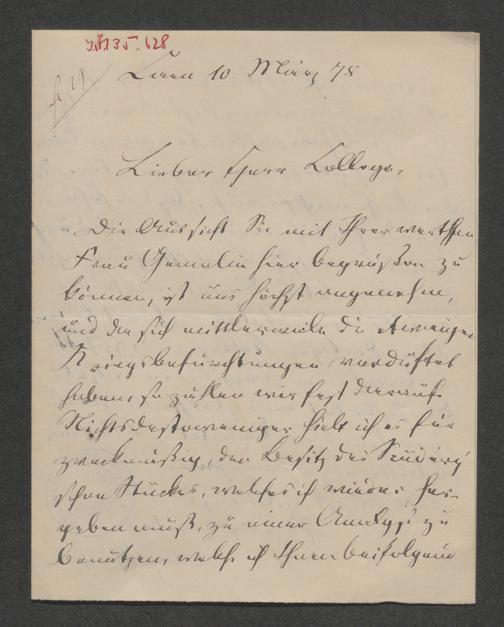 I.N. 135.628
Wien 10 März 78
Lieber Herr College,
Die Aussicht Sie mit Ihrer werthen
Frau Gemalin hier begrüßen zu
können, ist uns höchst angenehm,
und da sich mittlerweile die
Kriegsbefürchtungen verdüftet
haben, so zählen wir fest darauf.
Nichtsdestoweniger hielt ich es für
zweckmäßig, den Besitz des
schen Stückes, welches ich wieder her-
geben muß, zu einer Analyse zu
benutzen, welche ich Ihnen beifolgend